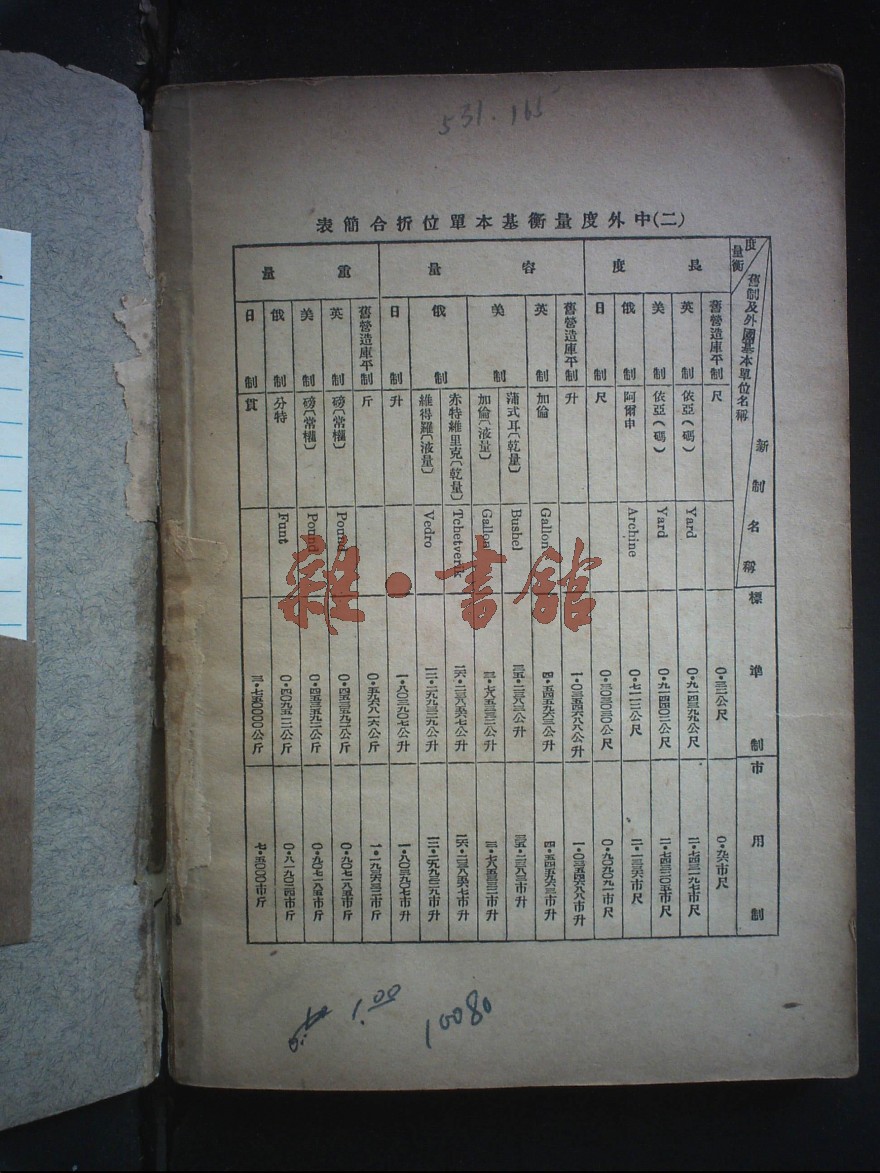 531.165
(二)中外度量衡基本單位折合簡表
度量衡
舊制及外國基本單位名稱
新制名稱
標準制
市用制
長度
舊營造庫平制 尺 〇·三二公尺 〇·九六市尺
英制 依亞(碼) Yard 〇·九一四三九九公尺 二·七四三一九七市尺
美制 依亞(碼) Yard 〇·九一四四〇二公尺 二·七四三二〇五市尺
俄制 阿爾申 Archine 〇·七一一二公尺 二·一三三六市尺
日制 尺 〇·三〇三〇三〇公尺 〇·九〇九〇九一市尺
容量
舊營造庫平制 升 一·〇三五四六八八公升 一·〇三五四六八八市升
英制 加倫 Gallon 四·五四五九六三公升 四·五四五九六三市升
美制 蒲式耳〔乾量〕 Bushel 三五·二三八三公升 三五·二三八三市升
加倫〔液量〕 Gallon 三·七八五三三二公升 三·七八五三三二市升
俄制 赤特維里克〔乾量〕 Tchetverik 二六·二三八五六七公升 二六·二三八五六七市升
維得羅〔液量〕 Vedro 一二·二九九三二九公升 一二·二九九三二九市升
日制 升 一·八〇三九〇七公升 一·八〇三九〇七市升
重量
舊營造庫平制 斤 〇·五九六八一六公斤 一·一九三六三二市斤
英制 磅〔常權〕 Pound 〇·四五三五九二公斤 〇·九〇七一八五市斤
美制 磅〔常權〕 Pound 〇·四五三五九二公斤 〇·九〇七一八五市斤
俄制 分特 Funt 〇·四〇九五一二公斤 〇·八一九〇二四市斤
日制 貫 三·七五〇〇〇〇公斤 七·五〇〇〇市斤
雜·書館
1.00
10080